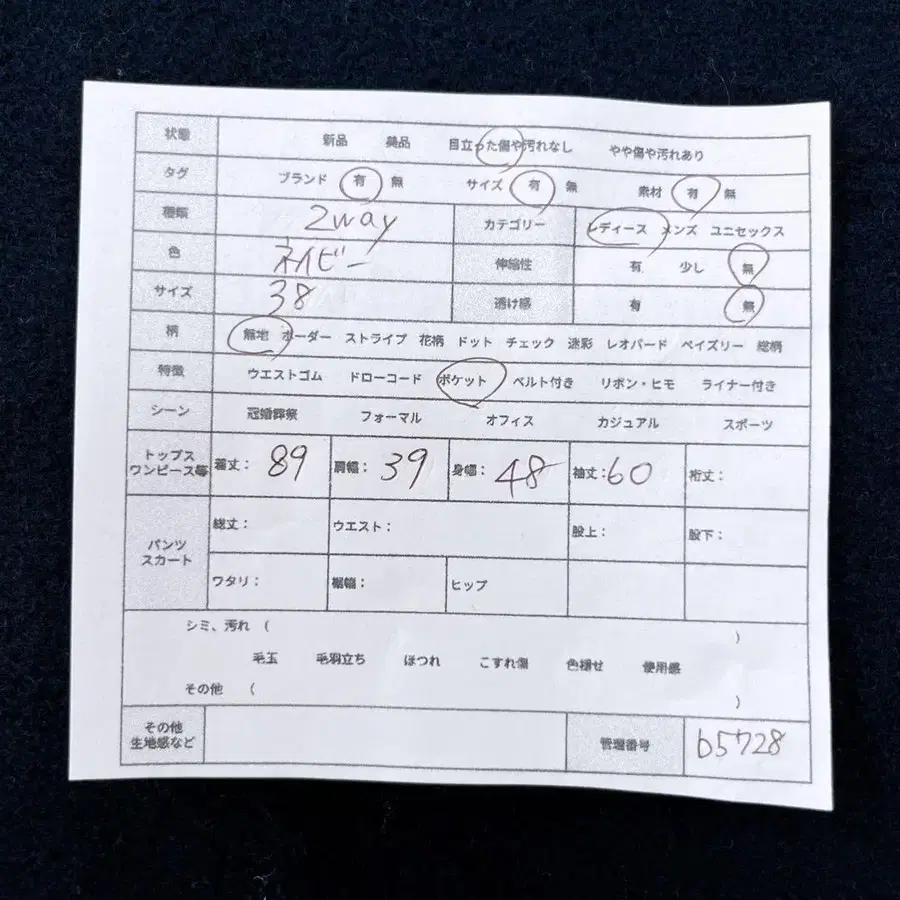 状態 新品 美品 目立った傷や汚れなし やや傷や汚れあり
タグ ブランド 有 無 サイズ 有 無 素材 有 無
種類 2way カテゴリー レディース メンズ ユニセックス
色 ネイビー 伸縮性 有 少し 無
サイズ 38 透け感 有 無
柄 無地 ボーダー ストライプ 花柄 ドット チェック 迷彩 レオパード ペイズリー 総柄
特徴 ウエストゴム ドローコード ポケット ベルト付き リボン・ヒモ ライナー付き
シーン 冠婚葬祭 フォーマル オフィス カジュアル スポーツ
トップス
ワンピース等 着丈: 89 肩幅: 39 身幅: 48 袖丈: 60 裄丈:
パンツ
スカート 総丈: ウエスト: 股上: 股下:
ワタリ: 裾幅: ヒップ
シミ、汚れ ( )
毛玉 毛羽立ち ほつれ こすれ傷 色褪せ 使用感
その他 ( )
その他
生地感など 管理番号 b5728